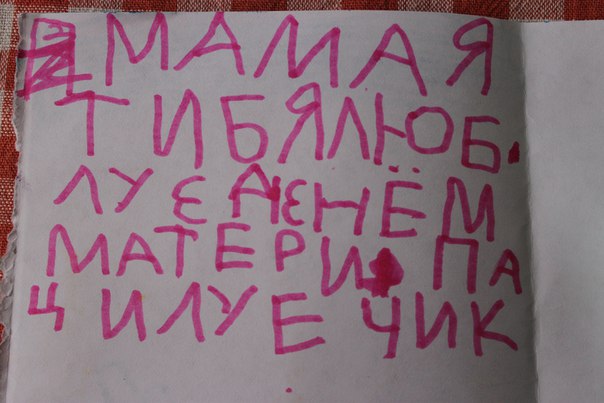 МАМА Я
ТИБЯ ЛЮБ
ЛУ С ДЕНЁМ
МАТЕРИ ПА
ЦИЛУЕЧИК